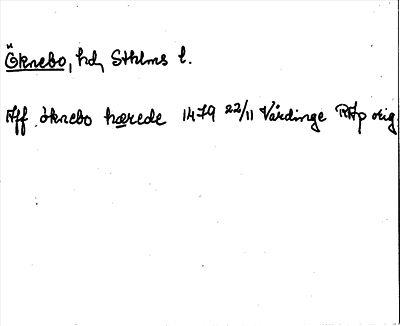 Öknebo, hd, Sthlms l.
Aff öknebo hærede 1479 22/11 Vårdinge RAp orig.